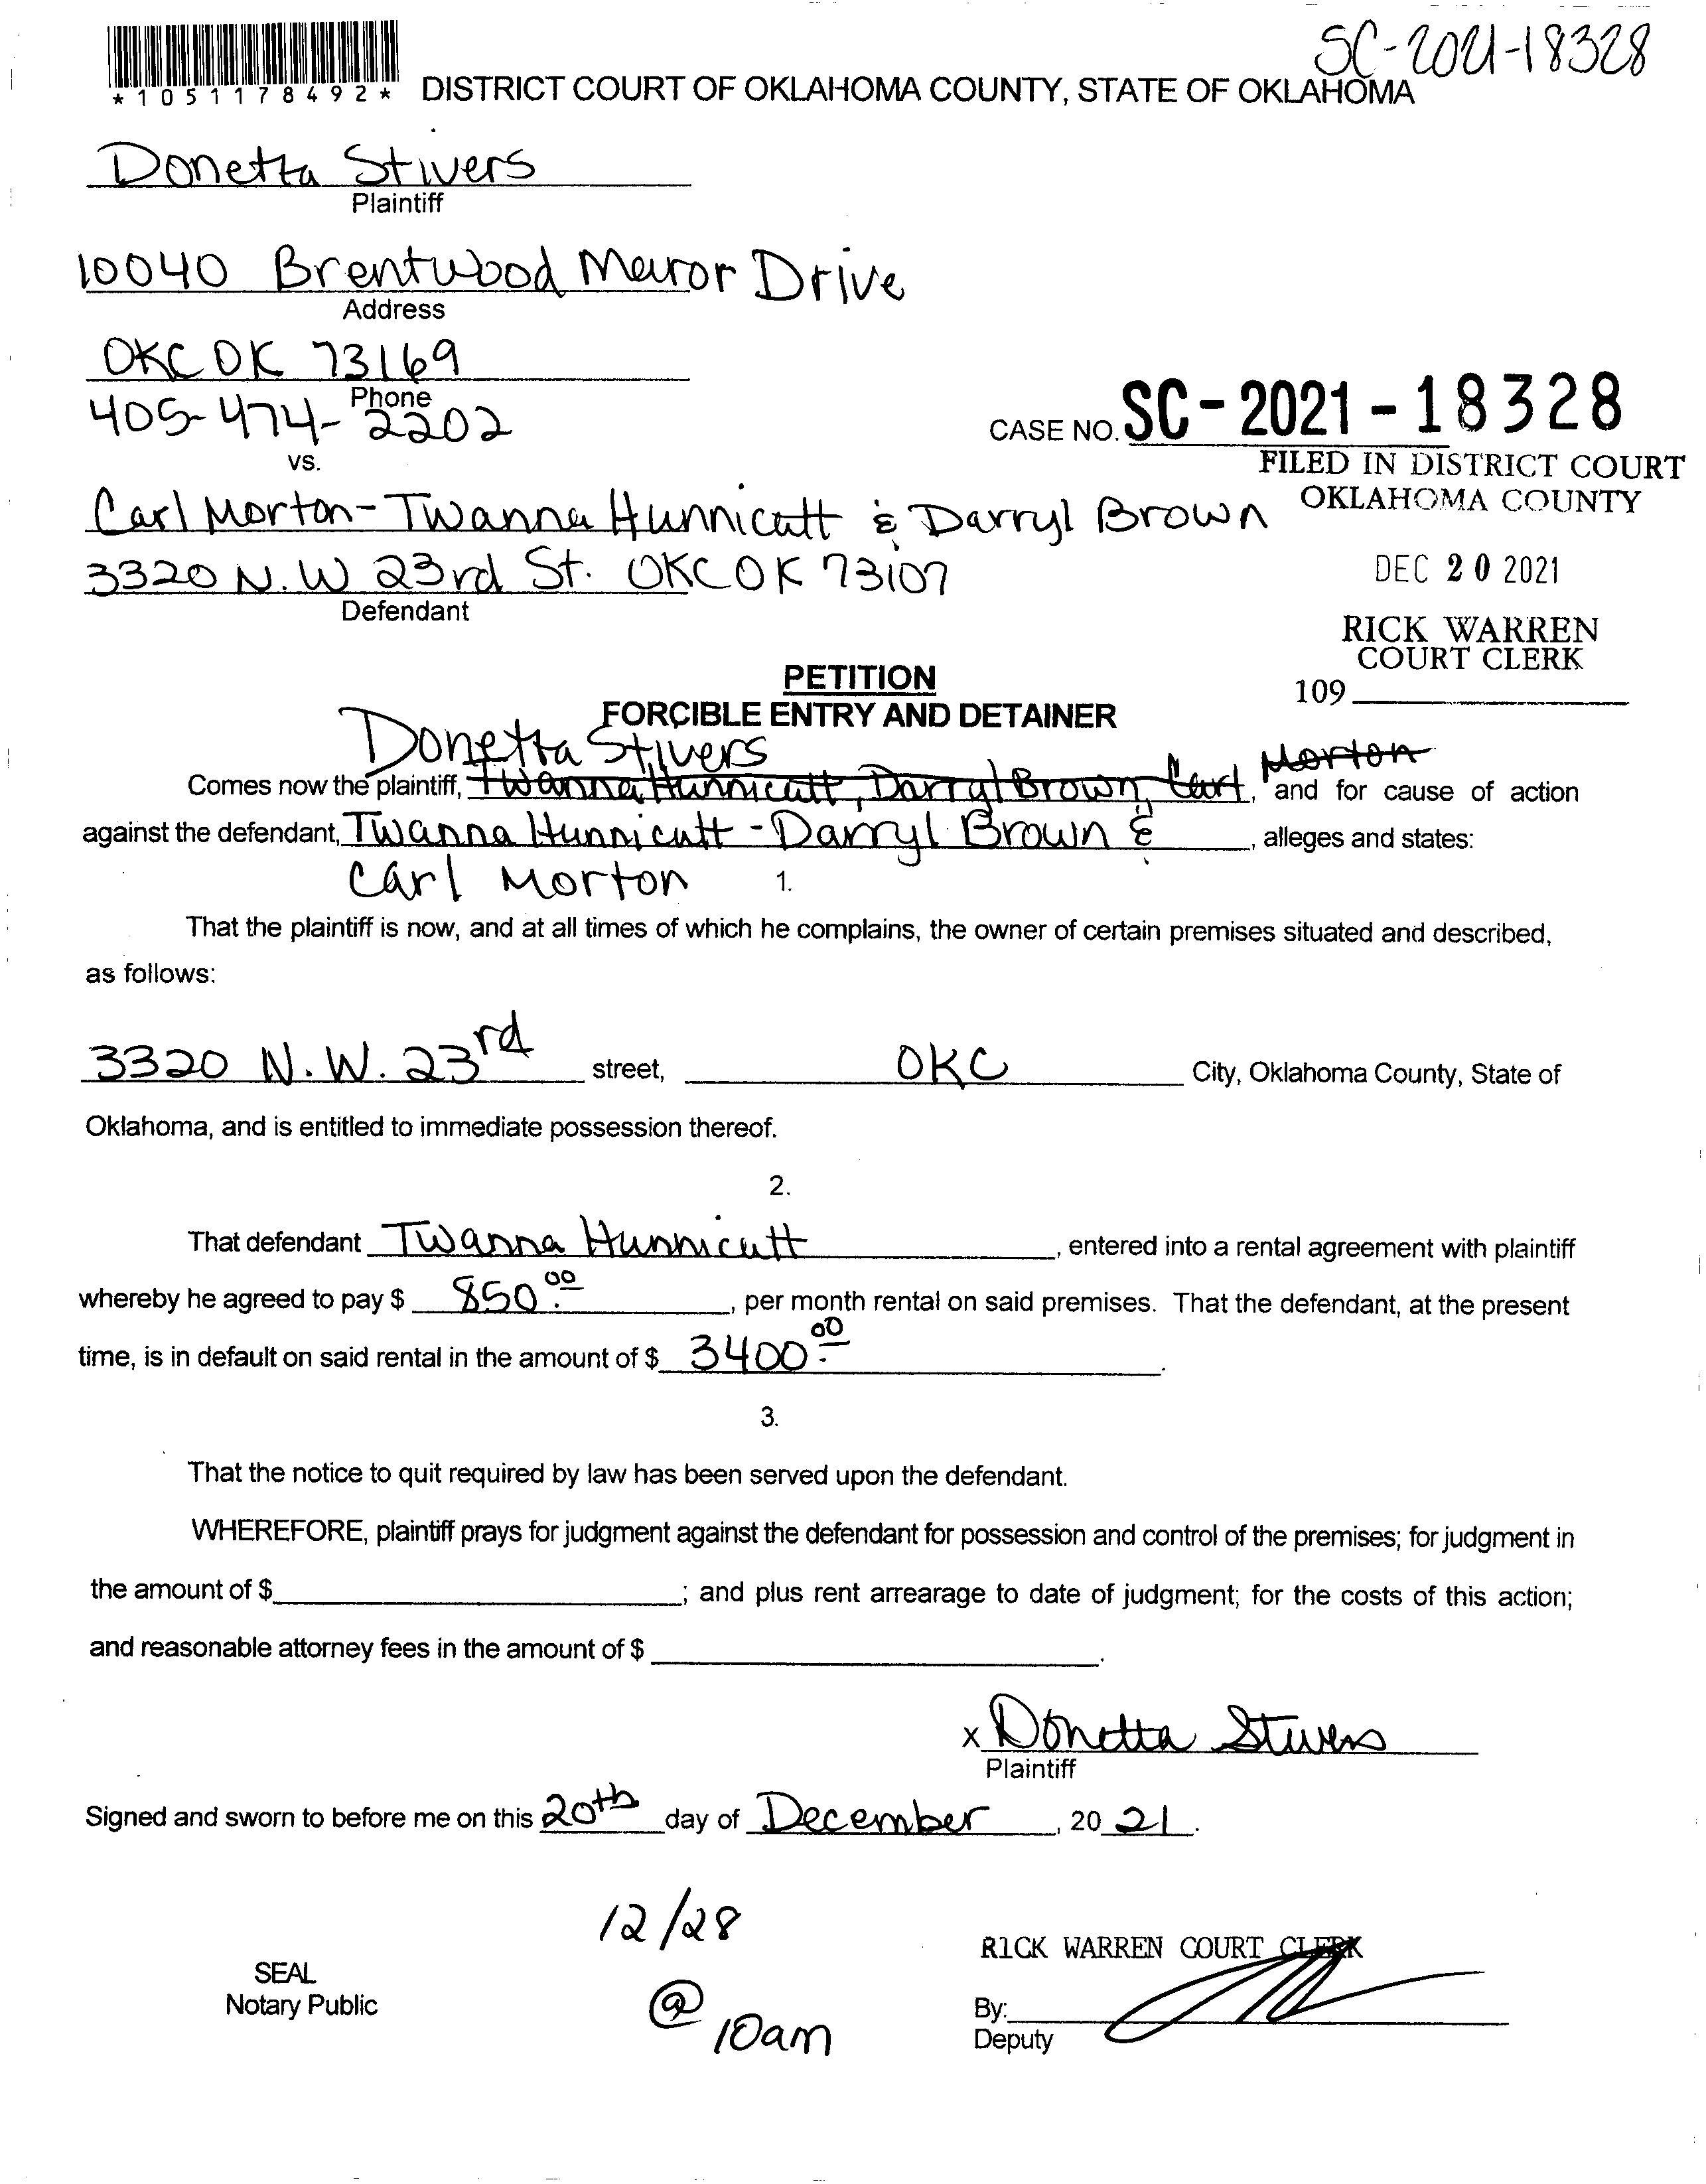 SC-2021-18328
*1051178492* DISTRICT COURT OF OKLAHOMA COUNTY, STATE OF OKLAHOMA
Donetta Stivers
Plaintiff
10040 Brentwood Manor Drive
Address
OKC OK 73169
Phone
405-474-2202
vs.
CASE NO. SC-2021-18328
FILED IN DISTRICT COURT
OKLAHOMA COUNTY
Carl Morton-Twanna Hunnicutt & Darryl Brown
3320 N.W 23rd St. OKC OK 73107
Defendant
DEC 20 2021
RICK WARREN
COURT CLERK
109
PETITION
FORCIBLE ENTRY AND DETAINER
Donetta Stivers
Comes now the plaintiff, Twanna Hunnicutt, Darryl Brown, Carl Morton, and for cause of action
against the defendant, Twanna Hunnicutt - Darryl Brown & , alleges and states:
Carl Morton
1.
That the plaintiff is now, and at all times of which he complains, the owner of certain premises situated and described,
as follows:
3320 N.W. 23rd street, OKC City, Oklahoma County, State of
Oklahoma, and is entitled to immediate possession thereof.
2.
That defendant Twanna Hunnicutt, entered into a rental agreement with plaintiff
whereby he agreed to pay $ 850.00, per month rental on said premises. That the defendant, at the present
time, is in default on said rental in the amount of $ 3400.00.
3.
That the notice to quit required by law has been served upon the defendant.
WHEREFORE, plaintiff prays for judgment against the defendant for possession and control of the premises; for judgment in
the amount of $ ; and plus rent arrearage to date of judgment; for the costs of this action;
and reasonable attorney fees in the amount of $ .
x Donetta Stivers
Plaintiff
Signed and sworn to before me on this 20th day of December, 20 21.
12/28
@
10am
SEAL
Notary Public
RICK WARREN COURT CLERK
By:
Deputy